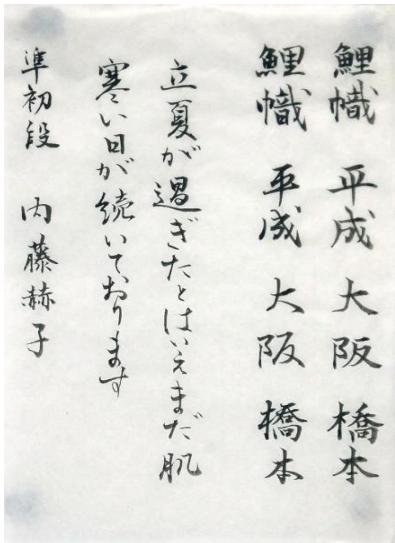 鯉幟 平成 大阪 橋本
鯉幟 平成 大阪 橋本
立夏が過ぎたとはいえまだ肌
寒い日が続いております
準初段 内藤赫子